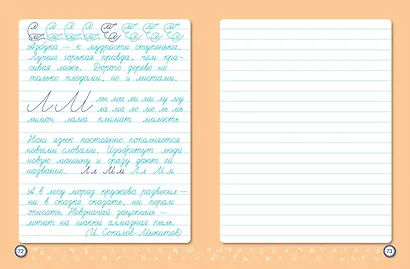 Азбука — к мудрости ступенька.
Лучше горькая правда, чем кра-
сивая ложь. Дорого дерево не
только плодами, но и листами.
Л М лы мы ли ми лу му
ла ма ле ме ль мь
лимон лапа климат милость
Наш язык постоянно пополняется
новыми словами. Изобретут люди
новую машину и сразу дают ей
название. Лл Мм Лл Мм
А в лесу мороз кружева развесил —
ни в сказке сказать, ни пером
описать. Невзначай зацепишь —
летит на шапки алмазная пыль.
(И. Соколов-Микитов)
72
73